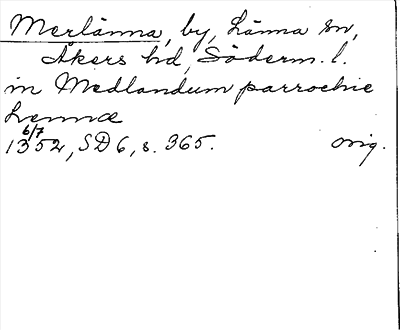 Merlänna, by, Länna sn,
Åkers hd, Söderm. l.
in Medlandum parrochie
Lennæ
6/7
1352, SD 6, s. 365. orig.